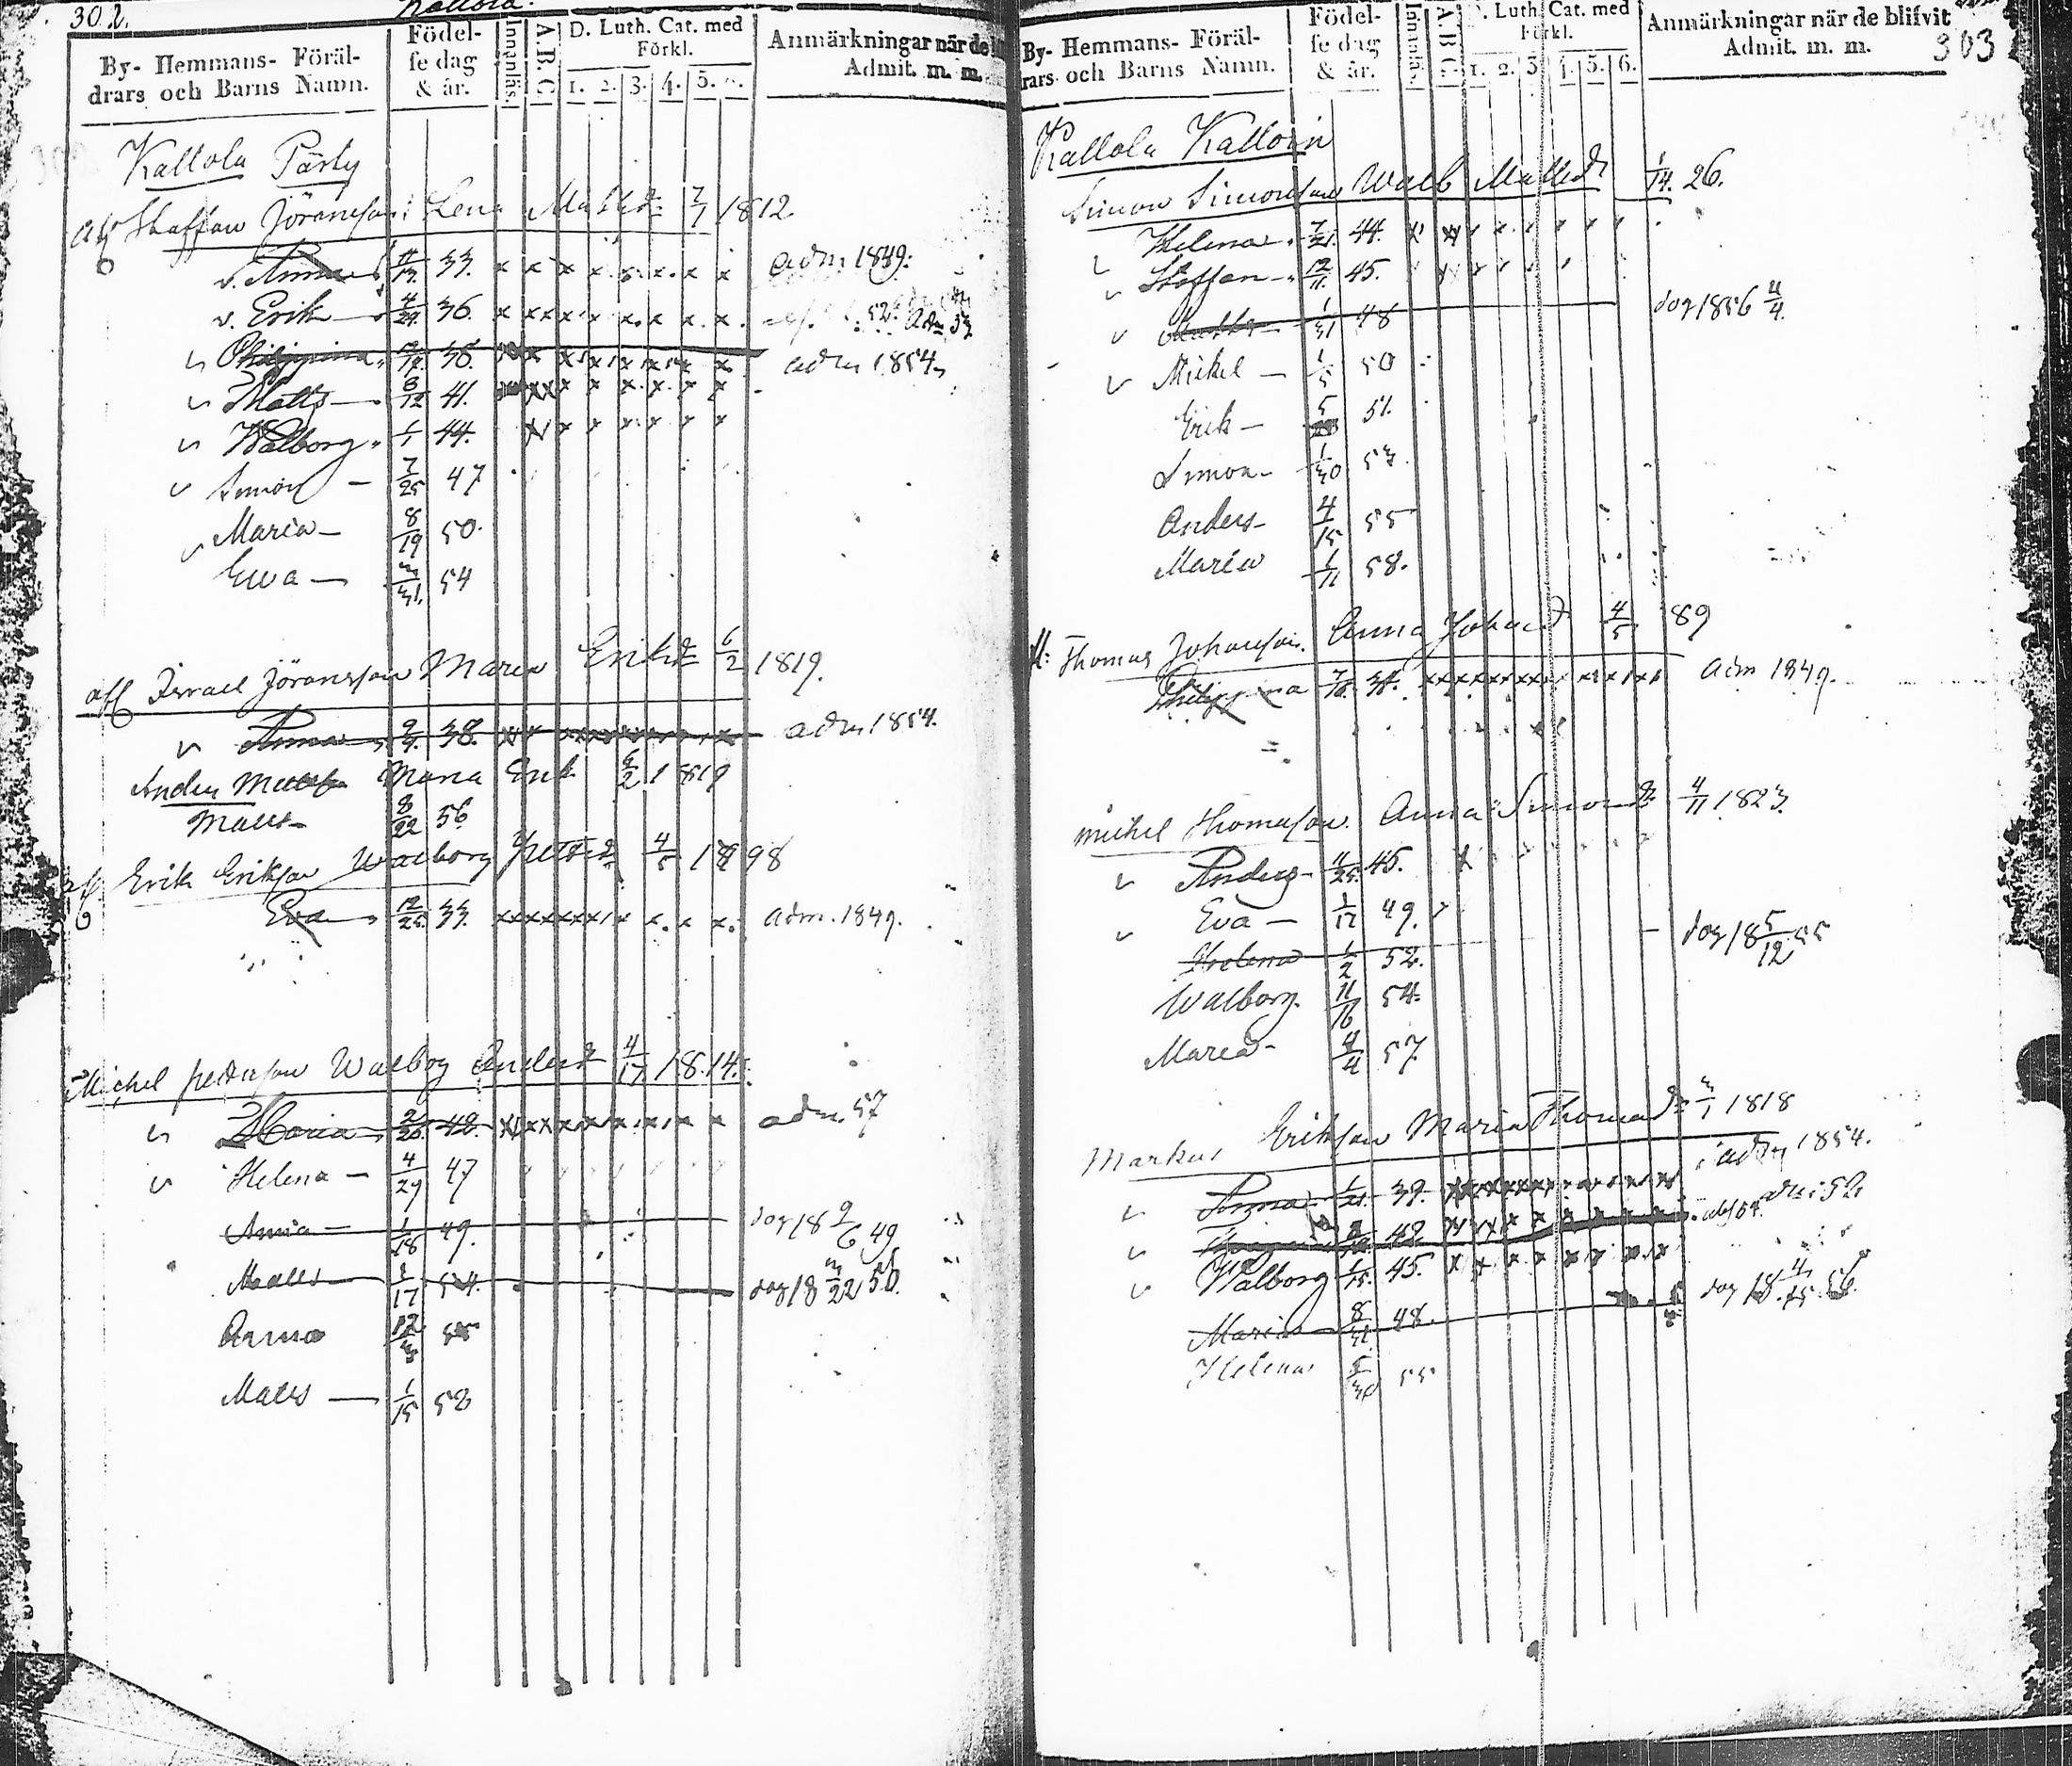 302.
Kallola.
By- Hemmans- Föräl-
drars och Barns Namn.
Födel-
se dag
& år.
Innanläs.
A.B.C.
D. Luth. Cat. med
Förkl.
1. 2. 3. 4. 5.
Anmärkningar när de
Admit. m. m.
Kallola Pärty
afl Staffan Jöransson Lena Mattsdr 7/7 1812
v. Anna 33. x x x x x x x x adm 1849.
v. Erik 4/29 36. x x x x x x x x x
Philippina 38. adm 1854
Matts 8/12 41. x x x x x x
Walborg 1/1 44. x x x x x x
Simon 7/25 47
Maria 8/19 50.
Ewa 3/31 54
afl Israel Jöransson Maria Eriksdr 6/2 1819.
Anna 38. adm 1854.
Anders Maria Erik 6/2 1819
Matts 8/22 56
Erik Eriksson Walborg 4/5 1798
Eva 12/25 33. xxxxxxx x x x x adm. 1849.
Michel Pedersson Walborg Andersdr 4/17 1814.
Maria 2/20 42. adm. 57
Helena 4/29 47
Anna 1/18 49. dog 18 9/6 49
Matts 1/17 54. dog 18 3/22 56.
Anna 12/3 55
Matts 1/15 58
303
By- Hemmans- Föräl-
drars och Barns Namn.
Födel-
se dag
& år.
Innanläs.
A.B.C.
D. Luth. Cat. med
Förkl.
1. 2. 3. 4. 5. 6.
Anmärkningar när de blifvit
Admit. m. m.
Kallola Kalloin
Simon Simonsson Walb Mattsdr 1/14. 26.
Helena 7/21. 44.
Staffan 12/11. 45.
1/31 48 dog 1856 4/4.
Mickel 1/5 50
Erik 5 51.
Simon 1/30 53.
Anders 4/15 55
Maria 1/11 58.
Thomas Johansson. Anna Johansdr 4/5 89
Philippina 34. adm 1849.
Michel Thomasson. Anna Simonsdr 4/11 1823.
Anders 4/25 45.
Eva 1/17 49.
Helena 1/2 52. dog 18 5/12 55
Walborg. 11/16 54.
Maria 4/4 57.
Markus Eriksson Maria Thomasdr 3/1 1818
Anna 1/21. 39. adm 1854.
42
Walborg 1/15. 45.
Maria 8/31 48. dog 18 4/15. 56.
Helena 5/30 55